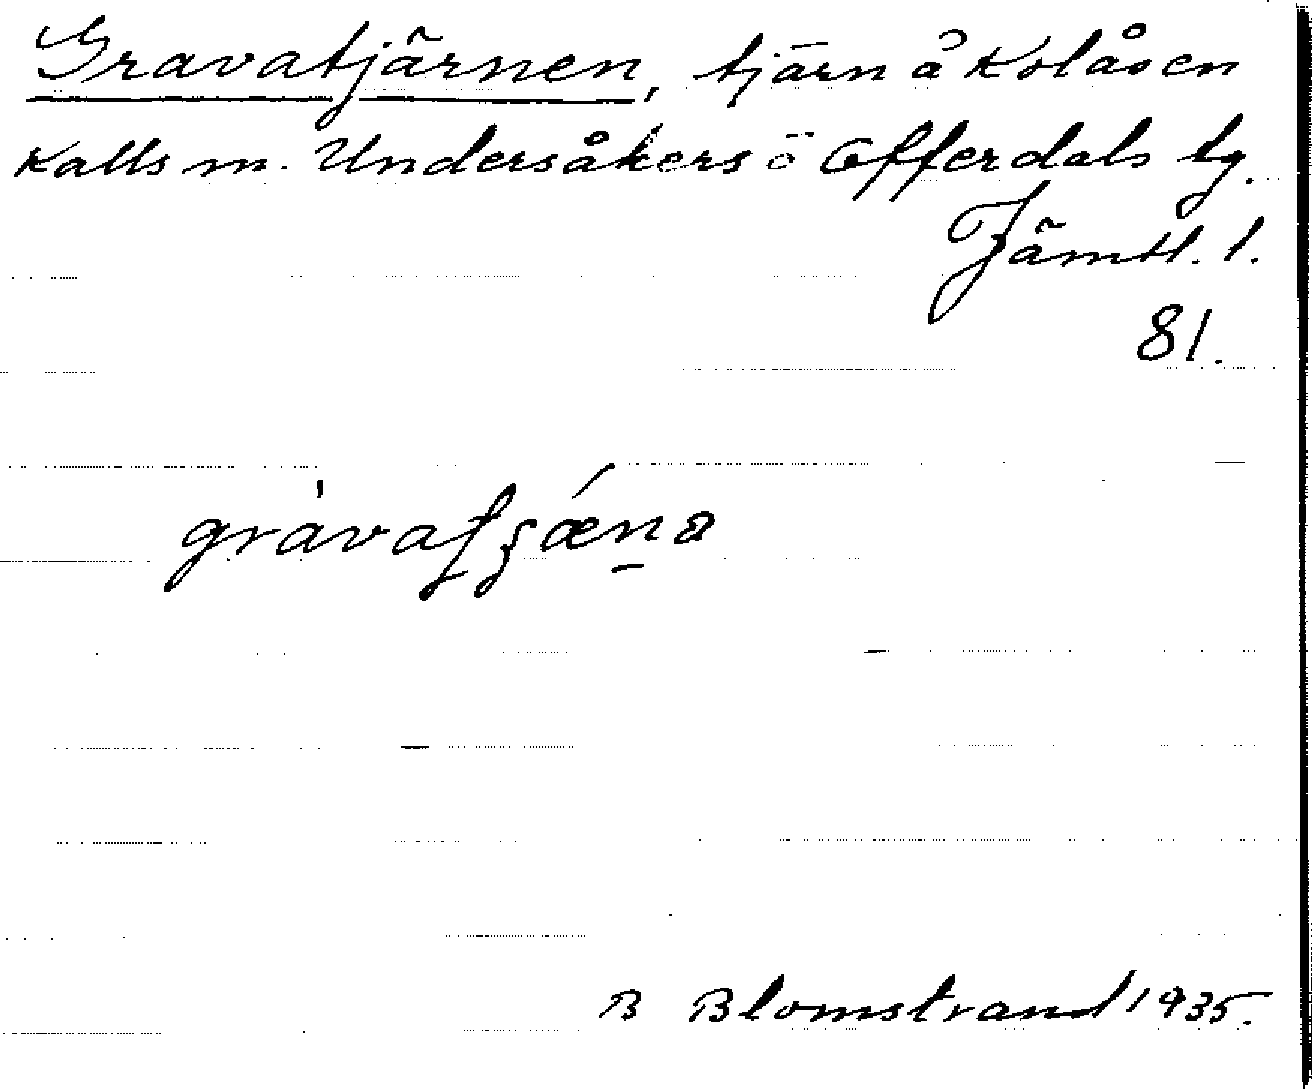 Gravatjärnen, tjärn å Kolåsen
Kalls sn. Undersåkers o Offerdals tg.
Jämtl. l.
81.
B Blomstrand 1935.